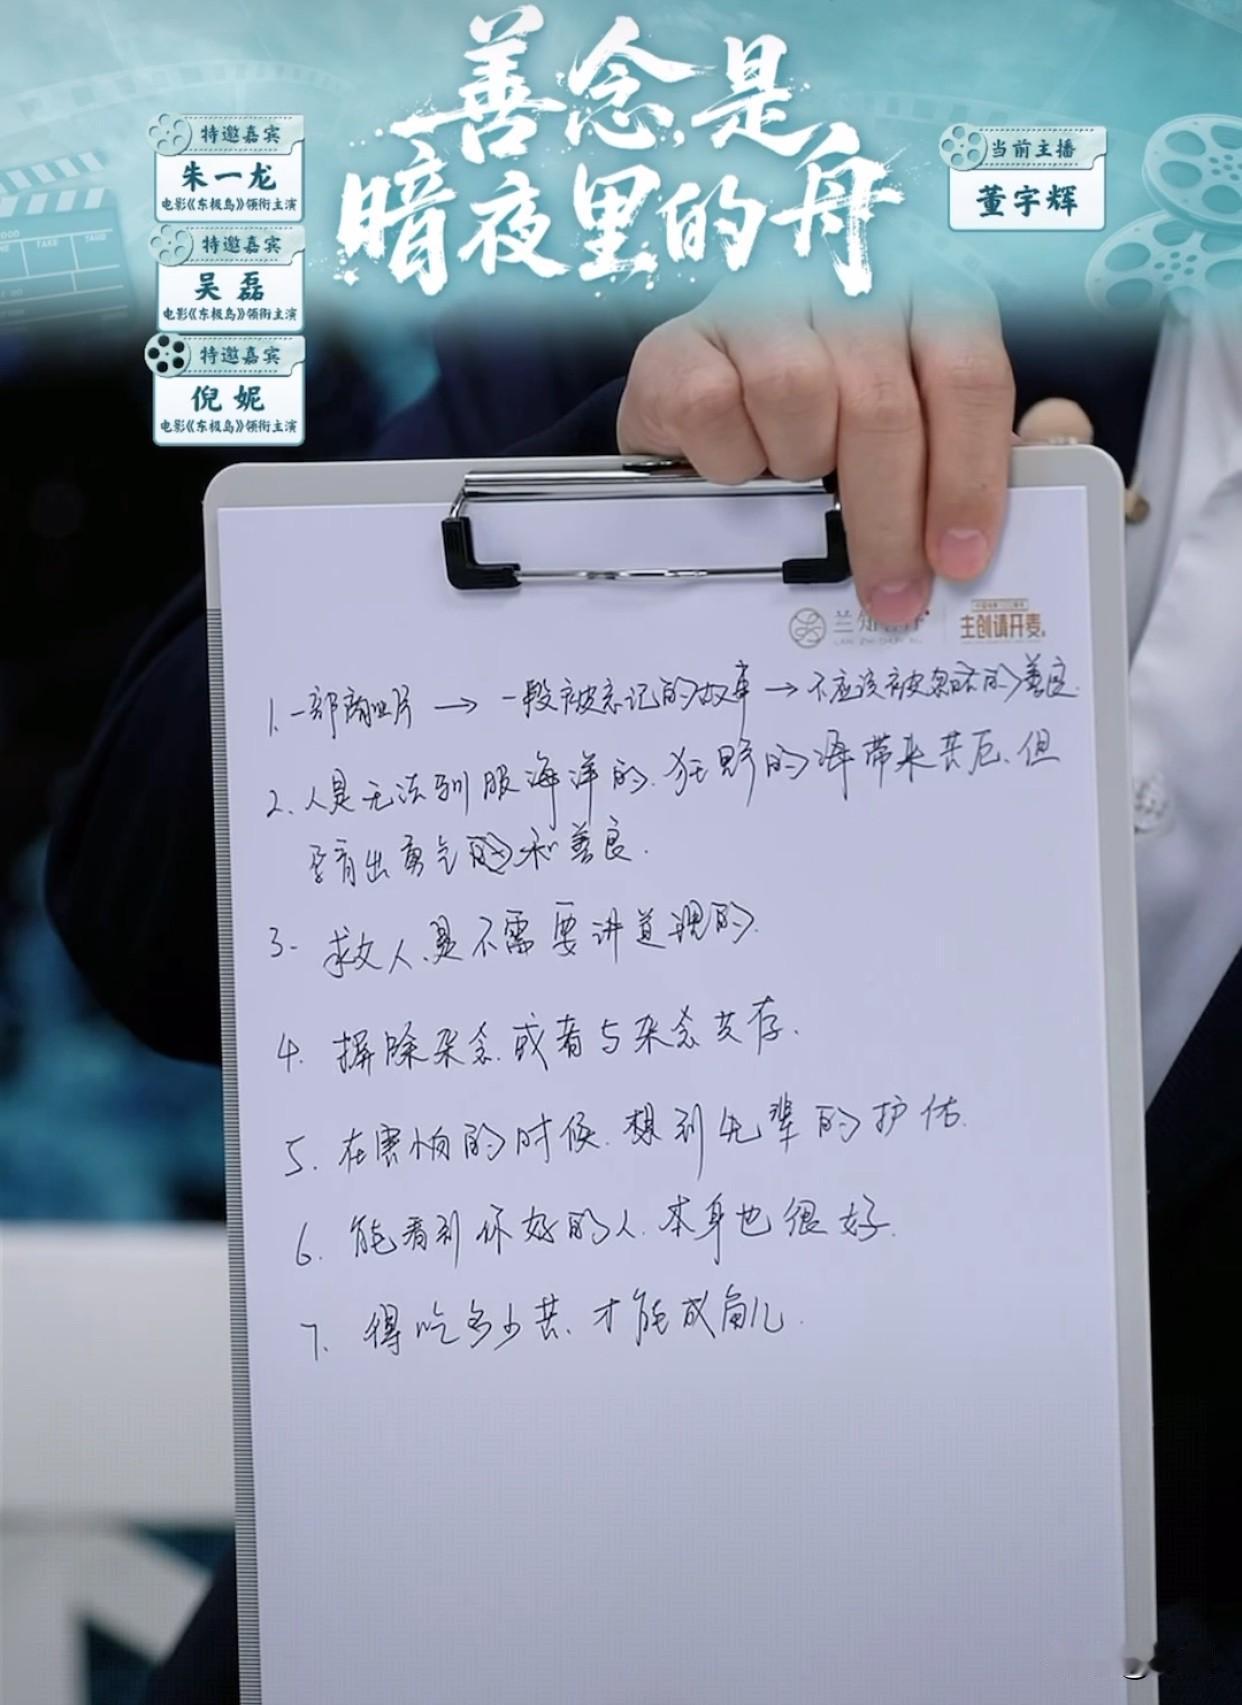 善念是
暗夜里的舟
特邀嘉宾
朱一龙
电影《东极岛》领衔主演
特邀嘉宾
吴磊
电影《东极岛》领衔主演
特邀嘉宾
倪妮
电影《东极岛》领衔主演
当前主播
董宇辉
兰知
主创请开麦
1. 一部商业片 → 一段被忘记的故事 → 不应该被忽略的善良.
2. 人是无法驯服海洋的. 狂野的海带来苦厄. 但
孕育出勇气的和善良.
3. 救人、是不需要讲道理的.
4. 摒除杂念. 或者与杂念共存.
5. 在害怕的时候. 想到先辈的护佑.
6. 能看到你好的人. 本身也很好.
7. 得吃多少苦、才能成角儿.